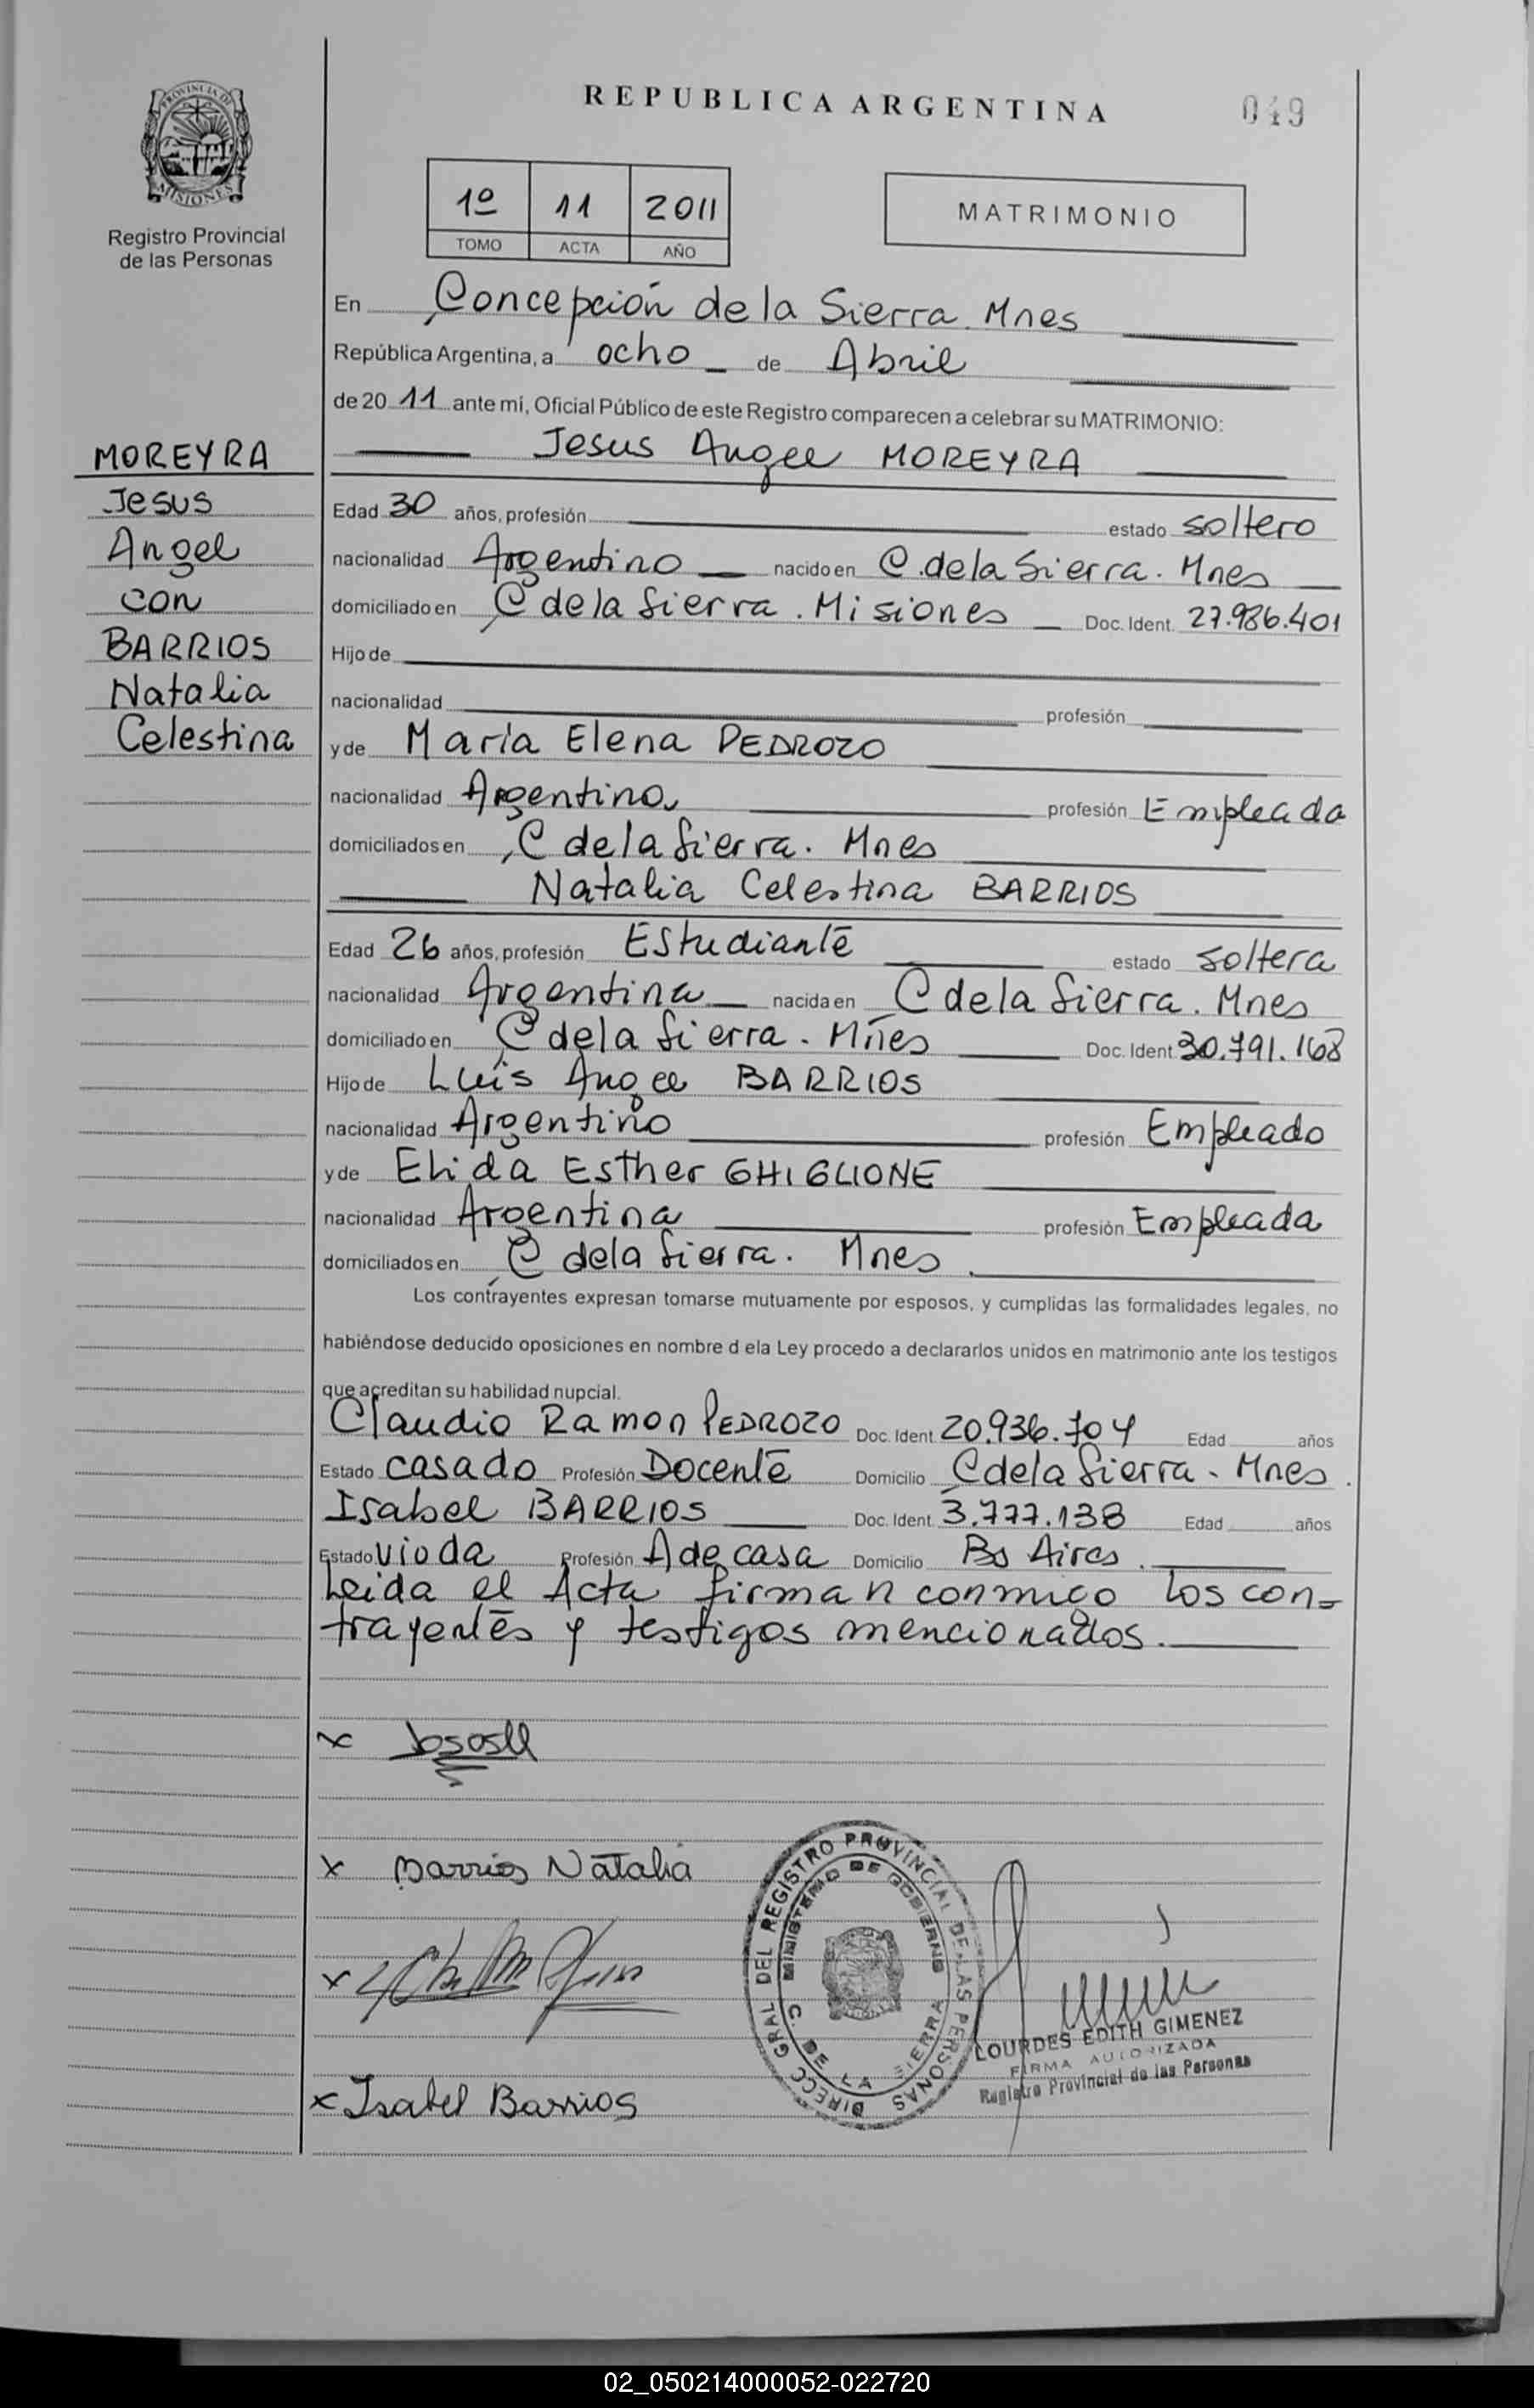 REPUBLICA ARGENTINA
049
PROVINCIA DE MISIONES
Registro Provincial
de las Personas
1º 11 2011
TOMO ACTA AÑO
MATRIMONIO
En Concepción de la Sierra. Mnes
República Argentina, a ocho de Abril
de 20 11 ante mí, Oficial Público de este Registro comparecen a celebrar su MATRIMONIO:
MOREYRA
Jesus
Angel
con
BARRIOS
Natalia
Celestina
Jesus Angel MOREYRA
Edad 30 años, profesión estado soltero
nacionalidad Argentino nacido en C. de la Sierra. Mnes
domiciliado en C de la Sierra. Misiones Doc. Ident. 27.986.401
Hijo de
nacionalidad profesión
y de María Elena PEDROZO
nacionalidad Argentina profesión Empleada
domiciliados en C de la Sierra. Mnes
Natalia Celestina BARRIOS
Edad 26 años, profesión Estudiante estado soltera
nacionalidad Argentina nacida en C de la Sierra. Mnes
domiciliado en C de la Sierra. Mnes Doc. Ident. 30.791.168
Hijo de Luis Angel BARRIOS
nacionalidad Argentino profesión Empleado
y de Elida Esther GHIGLIONE
nacionalidad Argentina profesión Empleada
domiciliados en C de la Sierra. Mnes.
Los contrayentes expresan tomarse mutuamente por esposos, y cumplidas las formalidades legales, no
habiéndose deducido oposiciones en nombre d ela Ley procedo a declararlos unidos en matrimonio ante los testigos
que acreditan su habilidad nupcial.
Claudio Ramon PEDROZO Doc. Ident. 20.936.704 Edad años
Estado casado Profesión Docente Domicilio C de la Sierra. Mnes.
Isabel BARRIOS Doc. Ident. 3.777.138 Edad años
Estado viuda Profesión A de casa Domicilio Bs Aires.
Leida el Acta firman conmigo los con-
trayentes y testigos mencionados.
x
x Barrios Natalia
x
x Isabel Barrios
DIRECC GRAL DEL REGISTRO PROVINCIAL DE LAS PERSONAS
MINISTERIO DE GOBIERNO
C. DE LA SIERRA
LOURDES EDITH GIMENEZ
FIRMA AUTORIZADA
Registro Provincial de las Personas
02_050214000052-022720